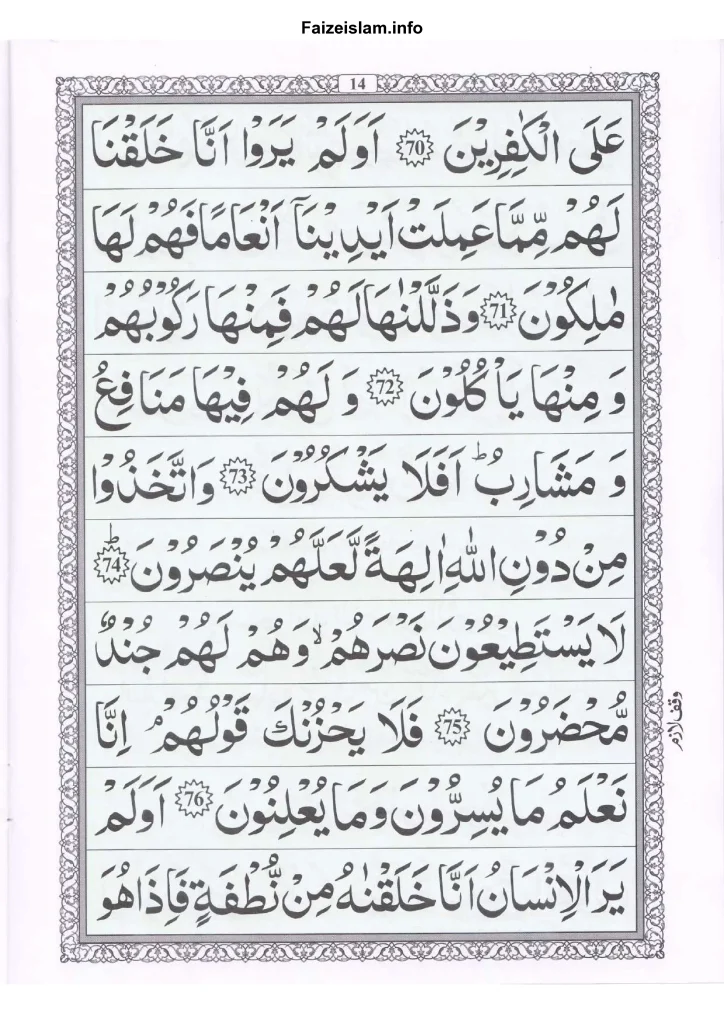 Faizeislam.info
14
عَلَى الْكٰفِرِيْنَ 70 اَوَلَمْ يَرَوْا اَنَّا خَلَقْنَا
لَهُمْ مِّمَّا عَمِلَتْ اَيْدِيْنَاۤ اَنْعَامًا فَهُمْ لَهَا
مٰلِكُوْنَ 71 وَذَلَّلْنٰهَا لَهُمْ فَمِنْهَا رَكُوْبُهُمْ
وَ مِنْهَا يَاْكُلُوْنَ 72 وَ لَهُمْ فِيْهَا مَنَافِعُ
وَ مَشَارِبُ ؕ اَفَلَا يَشْكُرُوْنَ 73 وَاتَّخَذُوْا
مِنْ دُوْنِ اللّٰهِ اٰلِهَةً لَّعَلَّهُمْ يُنْصَرُوْنَ ؕ 74
لَا يَسْتَطِيْعُوْنَ نَصْرَهُمْ ۙ وَهُمْ لَهُمْ جُنْدٌ
مُّحْضَرُوْنَ 75 فَلَا يَحْزُنْكَ قَوْلُهُمْ ۘ اِنَّا
وقف لازم
نَعْلَمُ مَا يُسِرُّوْنَ وَمَا يُعْلِنُوْنَ 76 اَوَلَمْ
يَرَ الْاِنْسَانُ اَنَّا خَلَقْنٰهُ مِنْ نُّطْفَةٍ فَاِذَا هُوَ